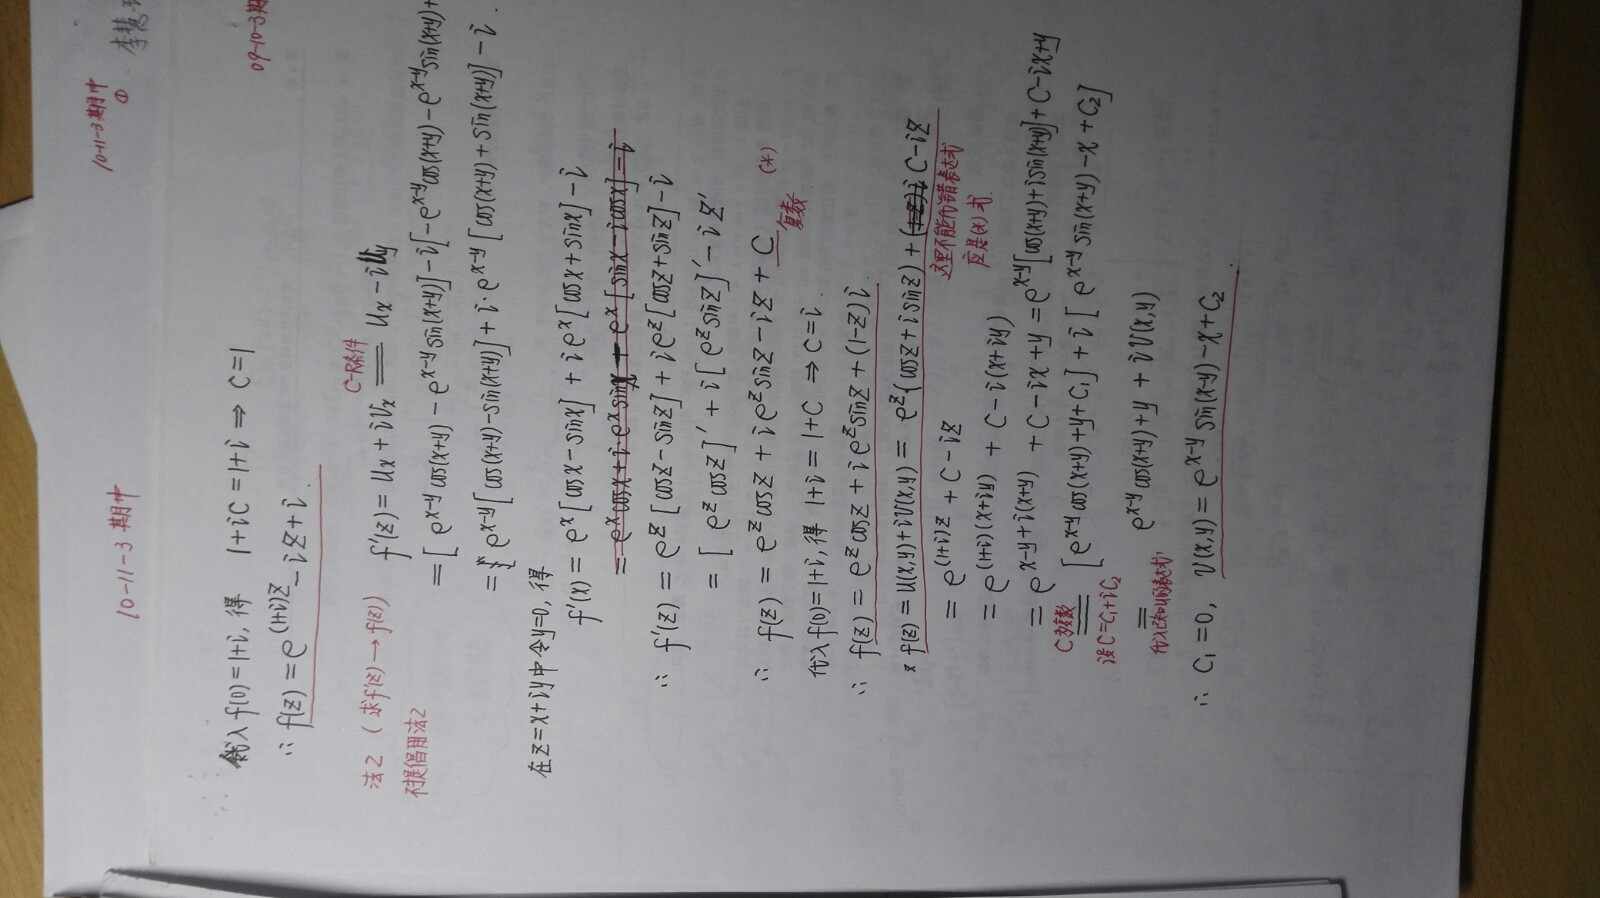 10-11-3期中
①
李慧
10-11-3期中
代入f(0)=1+i, 得 1+iC=1+i ⇒ C=1
∴ f(z)=e^{(1+i)z}-iz+i.
法2 (求f'(z)→f(z))
不提倡用法2
C-R条件
f'(z)=u_x+iv_x = u_x-iu_y
=[e^{x-y}cos(x+y)-e^{x-y}sin(x+y)]-i[-e^{x-y}cos(x+y)-e^{x-y}sin(x+y)+
=e^{x-y}[cos(x+y)-sin(x+y)]+i·e^{x-y}[cos(x+y)+sin(x+y)]-i.
在z=x+iy中令y=0, 得
f'(x)=e^x[cosx-sinx]+ie^x[cosx+sinx]-i
=e^x cosx+i·e^x sinx+e^x[sinx-icosx]=i
∴ f'(z)=e^z[cosz-sinz]+ie^z[cosz+sinz]-i
=[e^z cosz]'+i[e^z sinz]'-iz'
∴ f(z)=e^z cosz+ie^z sinz-iz+C (*)
复数
代入f(0)=1+i, 得 1+i=1+C ⇒C=i.
∴ f(z)=e^z cosz+ie^z sinz+(1-z)i
* f(z)=u(x,y)+iv(x,y)=e^z(cosz+isinz)+(1-z)i C-iz
这里不能代错表达式
应是(*)式
=e^{(1+i)z}+C-iz
=e^{(1+i)(x+iy)}+C-i(x+iy)
=e^{x-y+i(x+y)}+C-ix+y=e^{x-y}[cos(x+y)+isin(x+y)]+C-ix+y
C为复数
设C=C₁+iC₂
=[e^{x-y}cos(x+y)+y+C₁]+i[e^{x-y}sin(x+y)-x+C₂]
代入已知u的表达式
= e^{x-y}cos(x+y)+y+iv(x,y)
∴ C₁=0, v(x,y)=e^{x-y}sin(x-y)-x+C₂.